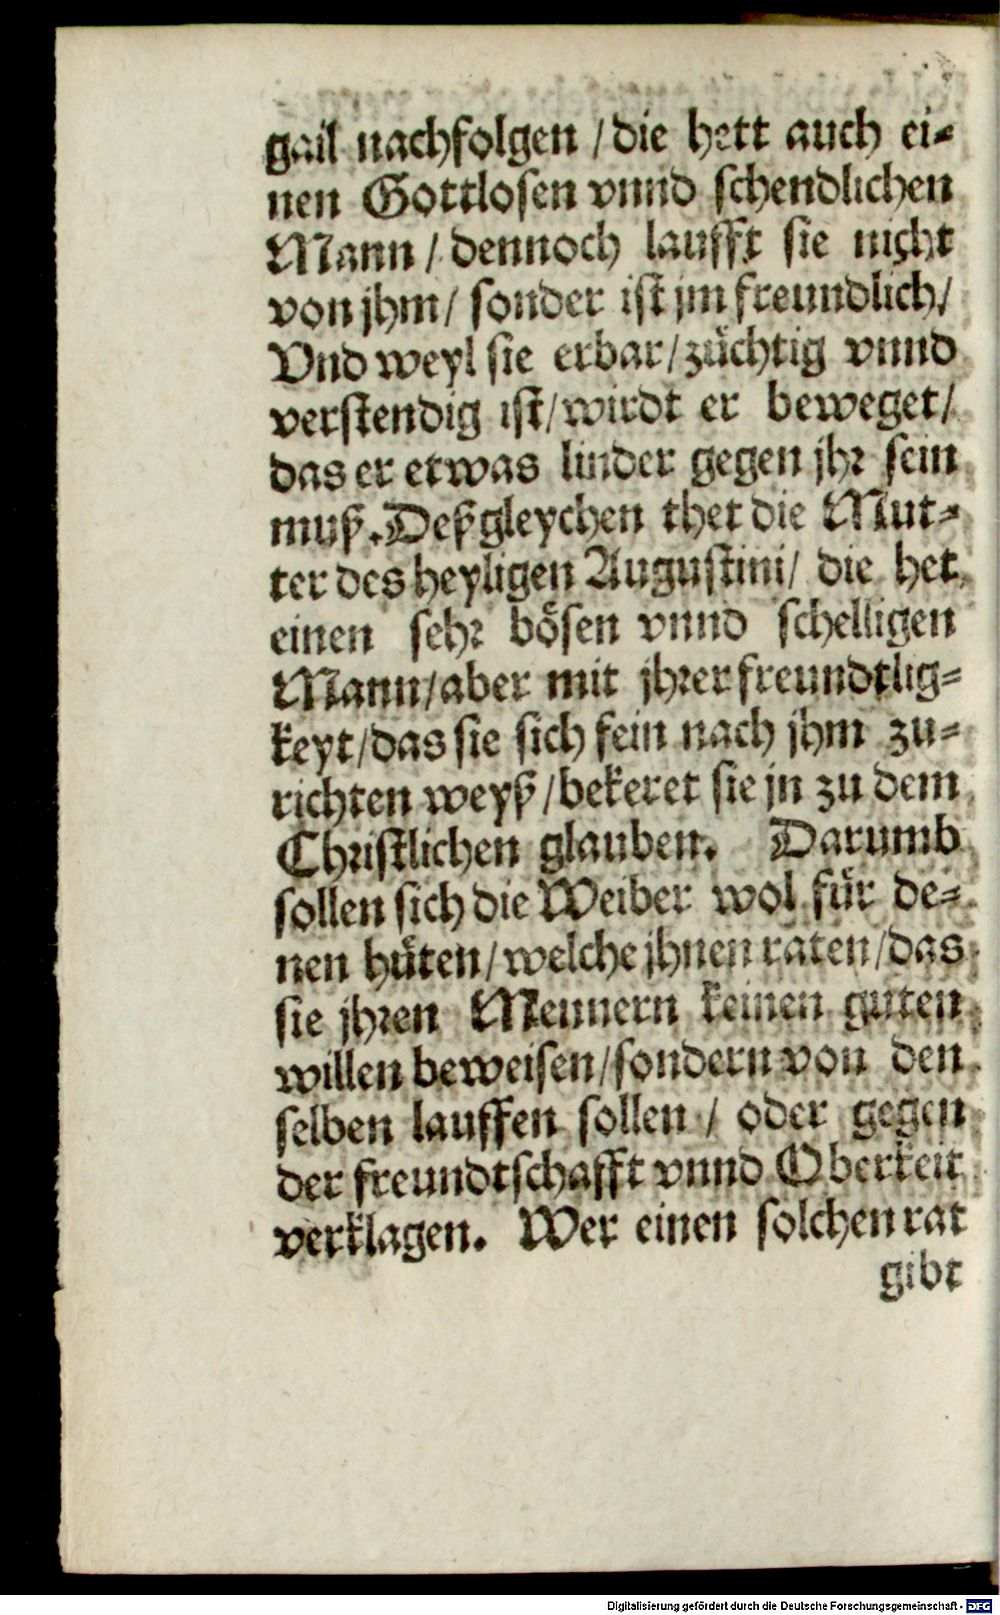 gail nachfolgen / die hett auch ei-
nen Gottlosen vnnd schendlichen
Mann / dennoch laufft sie nicht
von jhm / sonder ist jm freundlich /
Vnd weyl sie erbar / züchtig vnnd
verstendig ist / wirdt er beweget /
das er etwas linder gegen jhr sein
muß. Deßgleychen thet die Mut-
ter des heyligen Augustini / die het
einen sehr bösen vnnd schelligen
Mann / aber mit jhrer freundtlig-
keyt / das sie sich fein nach jhm zu-
richten weyß / bekeret sie jn zu dem
Christlichen glauben. Darumb
sollen sich die Weiber wol für de-
nen hüten / welche jhnen raten / das
sie jhren Mennern keinen guten
willen beweisen / sondern von den
selben lauffen sollen / oder gegen
der freundtschafft vnnd Oberkeit
verklagen. Wer einen solchen rat
gibt
Digitalisierung gefördert durch die Deutsche Forschungsgemeinschaft - DFG